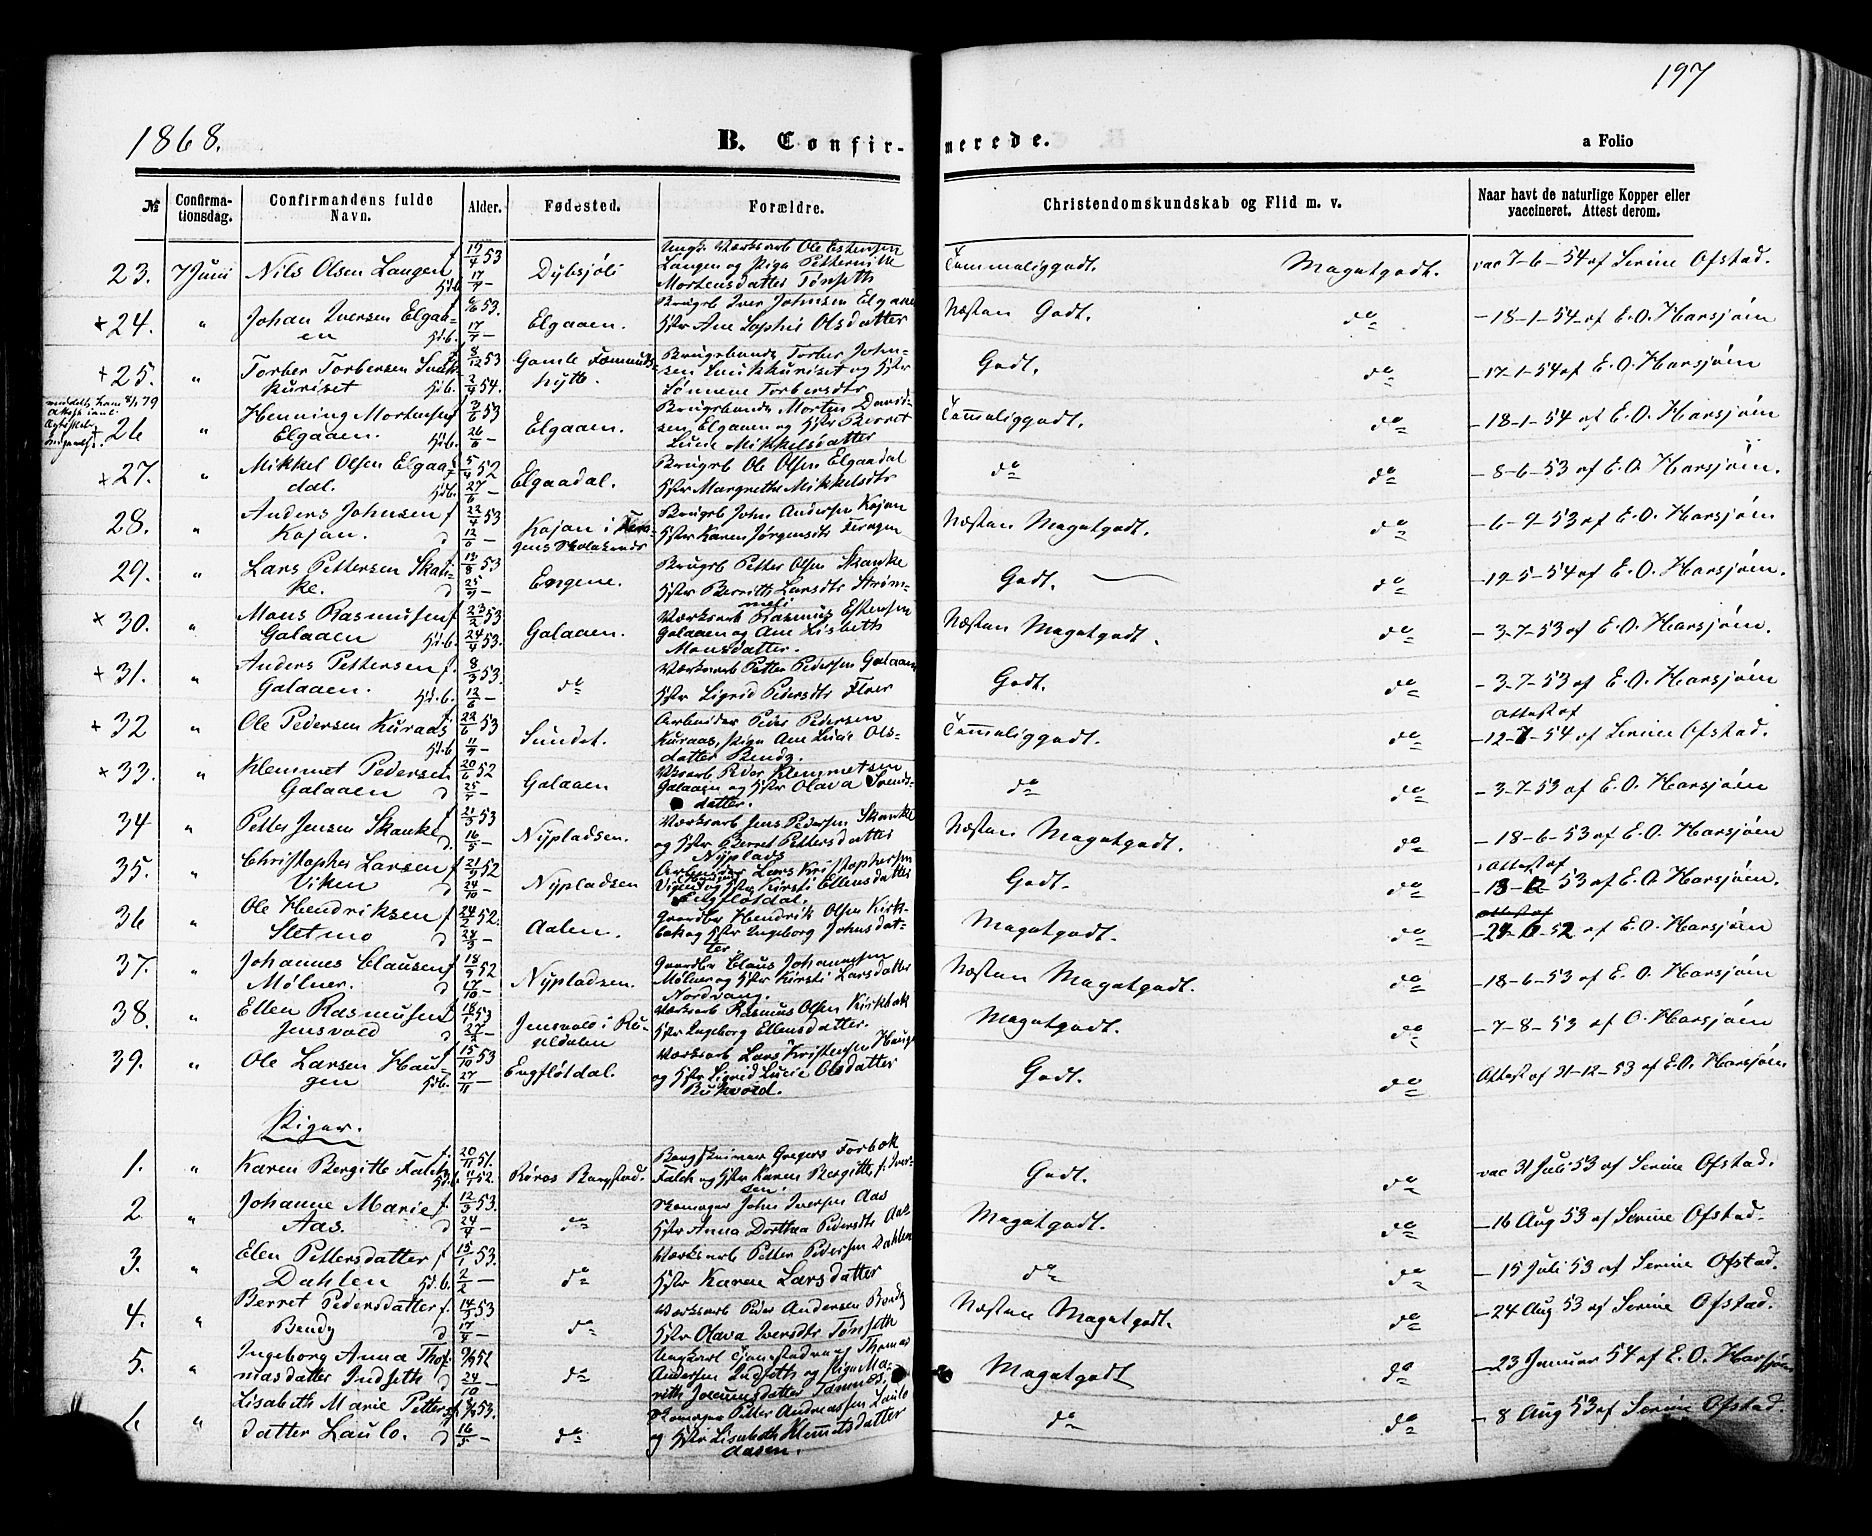 197
1868.
B. Confir-
merede.
a Folio
№
Confirma-
tionsdag.
Confirmandens fulde
Navn.
Alder.
Fødested.
Forældre.
Christendomskundskab og Flid m. v.
Naar havt de naturlige Kopper eller
vaccineret. Attest derom.
23. 7 Juni Nils Olsen Langen f 19/4 53 Dybsjöli Ole Estensen
Langen og Pige Petternille
Mortensdatter Tönseth Temmeliggodt. Megetgodt. vac 7-6-54 af Serine Ofstad.
+ 24. " Johan Iversen Elgaa-
en hdb. 17/7 Elgaaen. Brugsb Iver Johnsen Elgaaen
Hstr Ane Sophie Olsdatter Næsten Godt. do -18-1-54 af E. O. Harsjöen
+ 25. " Torber Torbersen
hdb. 8/12 53 2/4 54. Gamle Fæmunds-
hytte. Brugsbonde Torber John-
sen og Hstr
Sönneve Torbersdtr Godt. do -17-1-54 af E. O. Harsjöen
26 " Henning Mortensen f
Elgaaen. hdb. 53 26/6 Elgaaen. Brugsbonde Morten David-
sen Elgaaen og Hstr Berret
Lucie Mikkelsdatter Temeliggodt. do -18-1-54 af E. O. Harsjöen
+ 27. " Mikkel Olsen Elgaa-
dal. hdb. 5/4 52 27/6 - Elgaadal. Brugsb Ole Olsen Elgaadal
Hstr Margrethe Mikkelsdtr do do -8-6-53 af E. O. Harsjöen.
28. " Anders Johnsen f
Kojan. d 22/4 53 12/6 - Kojan i
Brugsb John Andersen Kojan
Hstr Karen Jörgensdtr Feragen Næsten Megetgodt. do -6-9-53 af E. O. Harsjöen
29. " Lars Pettersen Skan-
ke. d 53 25/9 - Engene. Brugsb Petter Olsen Skanke
Hstr Berrith Larsdtr Ström-
meli Godt. do -12-5-54 af E. O. Harsjöen.
+ 30. " Mons Rasmussen f
Galaaen hdb. 23/2 53 24/4 53. Galaaen. Værksarb Rasmus Estensen
Galaaen og Ane Lisbeth
Monsdatter. Næsten Megetgodt. do -3-7-53 af E. O. Harsjöen.
+ 31. " Anders Pettersen f.
Galaaen. hd.b. 8/3 53. 12/6 - do Værksarb Petter Pedersen Galaaen
Hstr Sigrid Pedersdtr Floer Godt. do -3-7-53 af E. O. Harsjöen
+ 32 " Ole Pedersen Kuraas
hdb. 22/6 53 11/9 - Sundet. Arbeider Peder Pedersen
Kuraas, Pige Ane Lucie Ols-
datter Bendy. Temeliggodt. do attest af
-12-7-54 af Serine Ofstad.
+ 33. " Klemmet Pedersen
Galaaen d 20/6 52 25/7 - Galaaen Værksarb Peder Klemmetsen
Galaaen og Hstr Olava Svends-
datter. do do -3-7-53 af E. O. Harsjöen
34 " Petter Jensen Skanke
d. 21/3 53 16/5 - Nypladsen. Værksarb Jens Pedersen Skanke
og Hstr Berret Pettersdatter
Nyplads Næsten Megetgodt. do -18-6-53 af E. O. Harsjöen
35. " Christopher Larsen f
Viken d 21/9 52 24/10 - Nypladsen Arbeider Lars Kristophersen
Viken og Hstr Kirsti Ellensdatter
Engflötdal. Godt. do Attest af
-18-12-53 af E. O. Harsjöen.
36 " Ole Hendriksen f
Sletmo d 24/2 52. 24/3 - Aalen. Gaardbr Hendrik Olsen Kirk-
bak og Hstr Ingeborg Johnsdat-
ter Megetgodt. do af E. O. Harsjöen
37. " Johannes Clausen f
Mölner. d 18/9 52 17/10 - Nypladsen. Gaardbr Claus Johannesen
Mölner og Hstr Kirsti Larsdatter
Nordvang. Næsten Megetgodt. do -18-6-53 af E. O. Harsjöen
38. " Ellen Rasmussen f
Jensvold d 18/1 53 27/2 - Jensvold i Ru-
geldalen Værksarb Rasmus Olsen Kirkbak
Hstr Ingeborg Ellensdatter. Megetgodt. do -7-8-53 af O. Harsjöen
39. " Ole Larsen Hau-
gen hdb. 15/10 53 27/11 - Engflötdal. Værksarb Lars Kristensen Haugen
og Hstr Sigrid Lucie Olsdatter
Godt. do Attest af 31-12-53 af E. O. Harsjöen
Piger.
1. " Karen Bergitte Falch
20/11 51. 11/1 52. Röros Bergstad. Gregers Forbok
Falch og Hstr Karen Bergitte f. Iver-
sen. Godt. do vac 31 Juli 53 af Serine Ofstad.
2. " Johanne Marie f.
Aas. d 12/3 53. 24/4 - do Skomager John Iversen Aas
Hstr Anna Dorthea Pedersdtr Aas Megetgodt. do -16 Aug 53 af Serine Ofstad.
3. " Elen Pettersdatter f
Dahlen hd.b. 15/1 53. 2/2 - do Værksarb Petter Pedersen Dahlen
Hstr Karen Larsdatter do do -15 Juli 53 af Serine Ofstad.
4. " Berret Pedersdatter f.
Bendy d 14/3 53 17/4 - do Værksarb Peder Andersen Bendy
Hstr Olava Iversdtr Tönseth Næsten Megetgodt. do -24 Aug 53 af Serine Ofstad.
5. " Ingeborg Anna Tho-
masdatter Indseth d 9/9 52 24/10 do Ungkarl Thomas
Andersen Indseth og Pige Ma-
rith Joensdatter Tamnes. Megetgodt do -23 Januar 54 af E. O. Harsjöen
6 " Lisabeth Marie Petters-
datter Laulo. d 53. 16/5 - do Skomager Petter Andreassen Laulo
og Hstr Lisabeth Klemetsdatter
Aasen. do do -8 Aug 53 af Serine Ofstad.